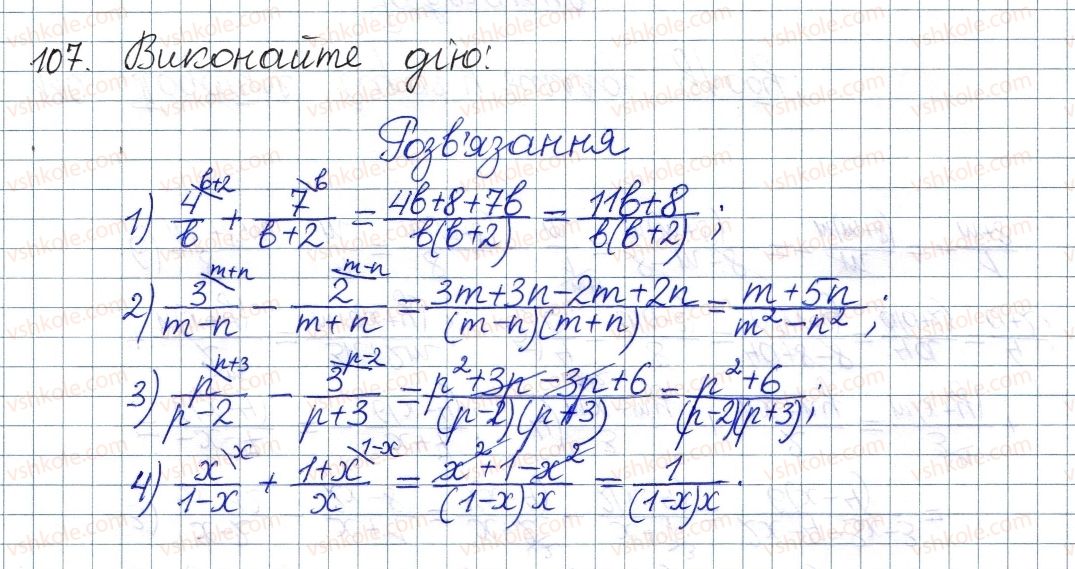 107. Виконайте дію:
Розв'язання
1) 4^{\в+2}/в + 7^{\в}/(в+2) = (4в+8+7в)/(в(в+2)) = (11в+8)/(в(в+2));
2) 3^{\m+n}/(m-n) - 2^{\m-n}/(m+n) = (3m+3n-2m+2n)/((m-n)(m+n)) = (m+5n)/(m²-n²);
3) p^{\p+3}/(p-2) - 3^{\p-2}/(p+3) = (p²+3p-3p+6)/((p-2)(p+3)) = (p²+6)/((p-2)(p+3));
4) x^{\x}/(1-x) + (1+x)^{\1-x}/x = (x²+1-x²)/((1-x)x) = 1/((1-x)x).